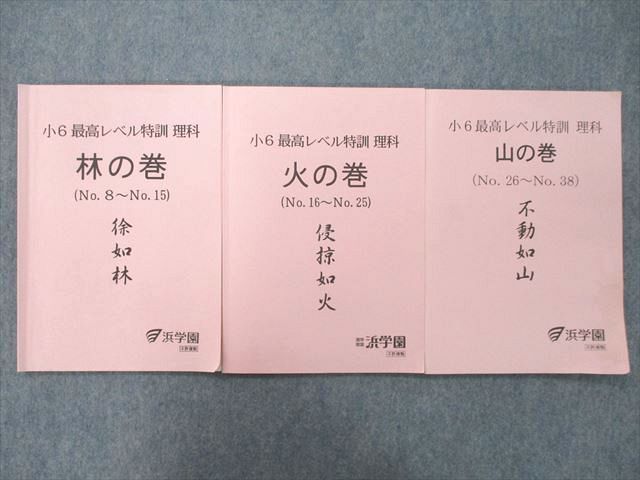 小６最高レベル特訓 理科
林の巻
(No. 8～No. 15)
徐如林
浜学園
小６最高レベル特訓 理科
火の巻
(No. 16～No. 25)
侵掠如火
進学教室 浜学園
小６最高レベル特訓 理科
山の巻
(No. 26～No. 38)
不動如山
浜学園